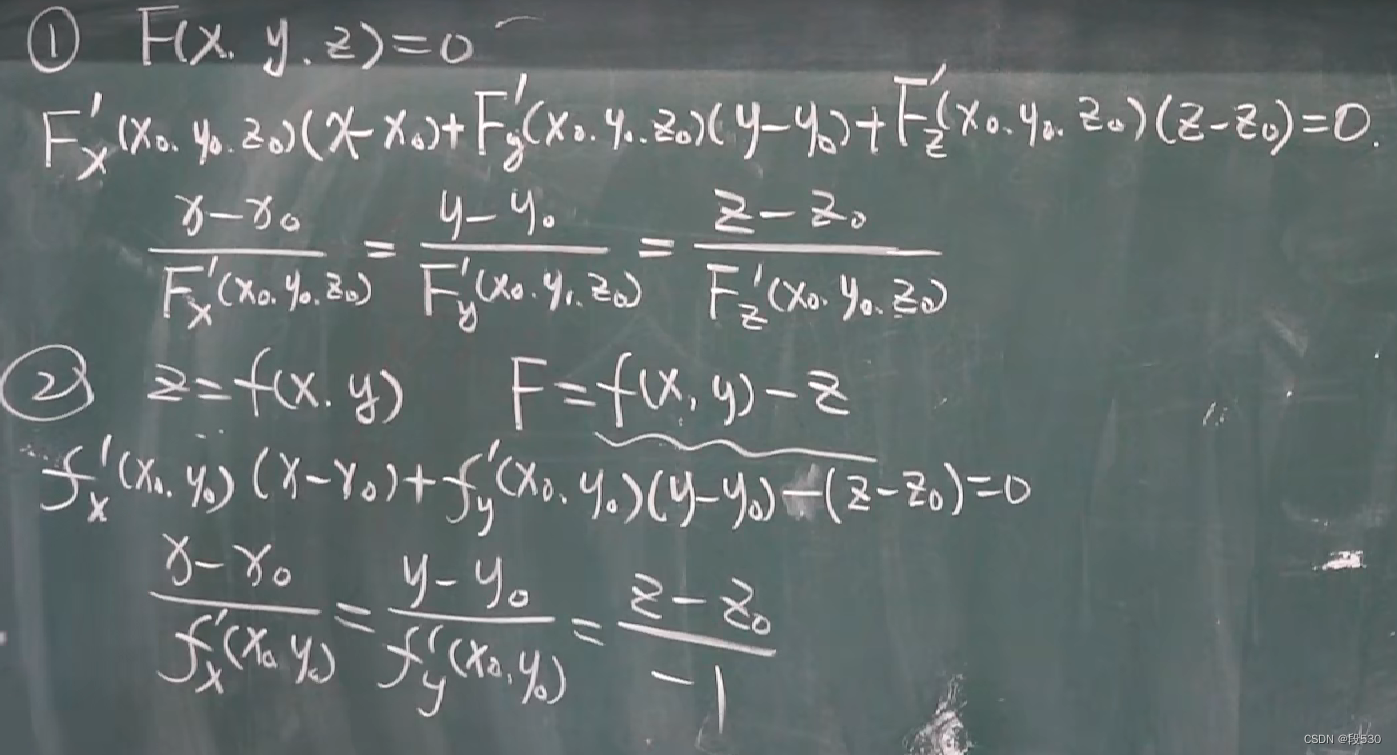 ① F(x.y.z)=0
F'x(x0.y0.z0)(x-x0)+F'y(x0.y0.z0)(y-y0)+F'z(x0.y0.z0)(z-z0)=0.
x-x0 / F'x(x0.y0.z0) = y-y0 / F'y(x0.y1.z0) = z-z0 / F'z(x0.y0.z0)
② z=f(x.y) F=f(x,y)-z
f'x(x0.y0)(x-x0)+f'y(x0.y0)(y-y0)-(z-z0)=0
x-x0 / f'x(x0 y0) = y-y0 / f'y(x0,y0) = z-z0 / -1
CSDN @段530